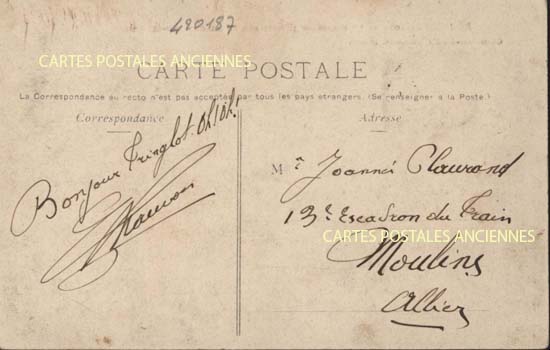 420187
CARTES POSTALES ANCIENNES
CARTE POSTALE
La Correspondance au recto n'est pas acceptée par tous les pays étrangers. (Se renseigner à la Poste.)
Correspondance
Bonjour Tringlot. Oh! Oh!
Adresse
Mr Joanni
13e Escadron du Train
CARTES POSTALES ANCIENNES
Moulins
Allier